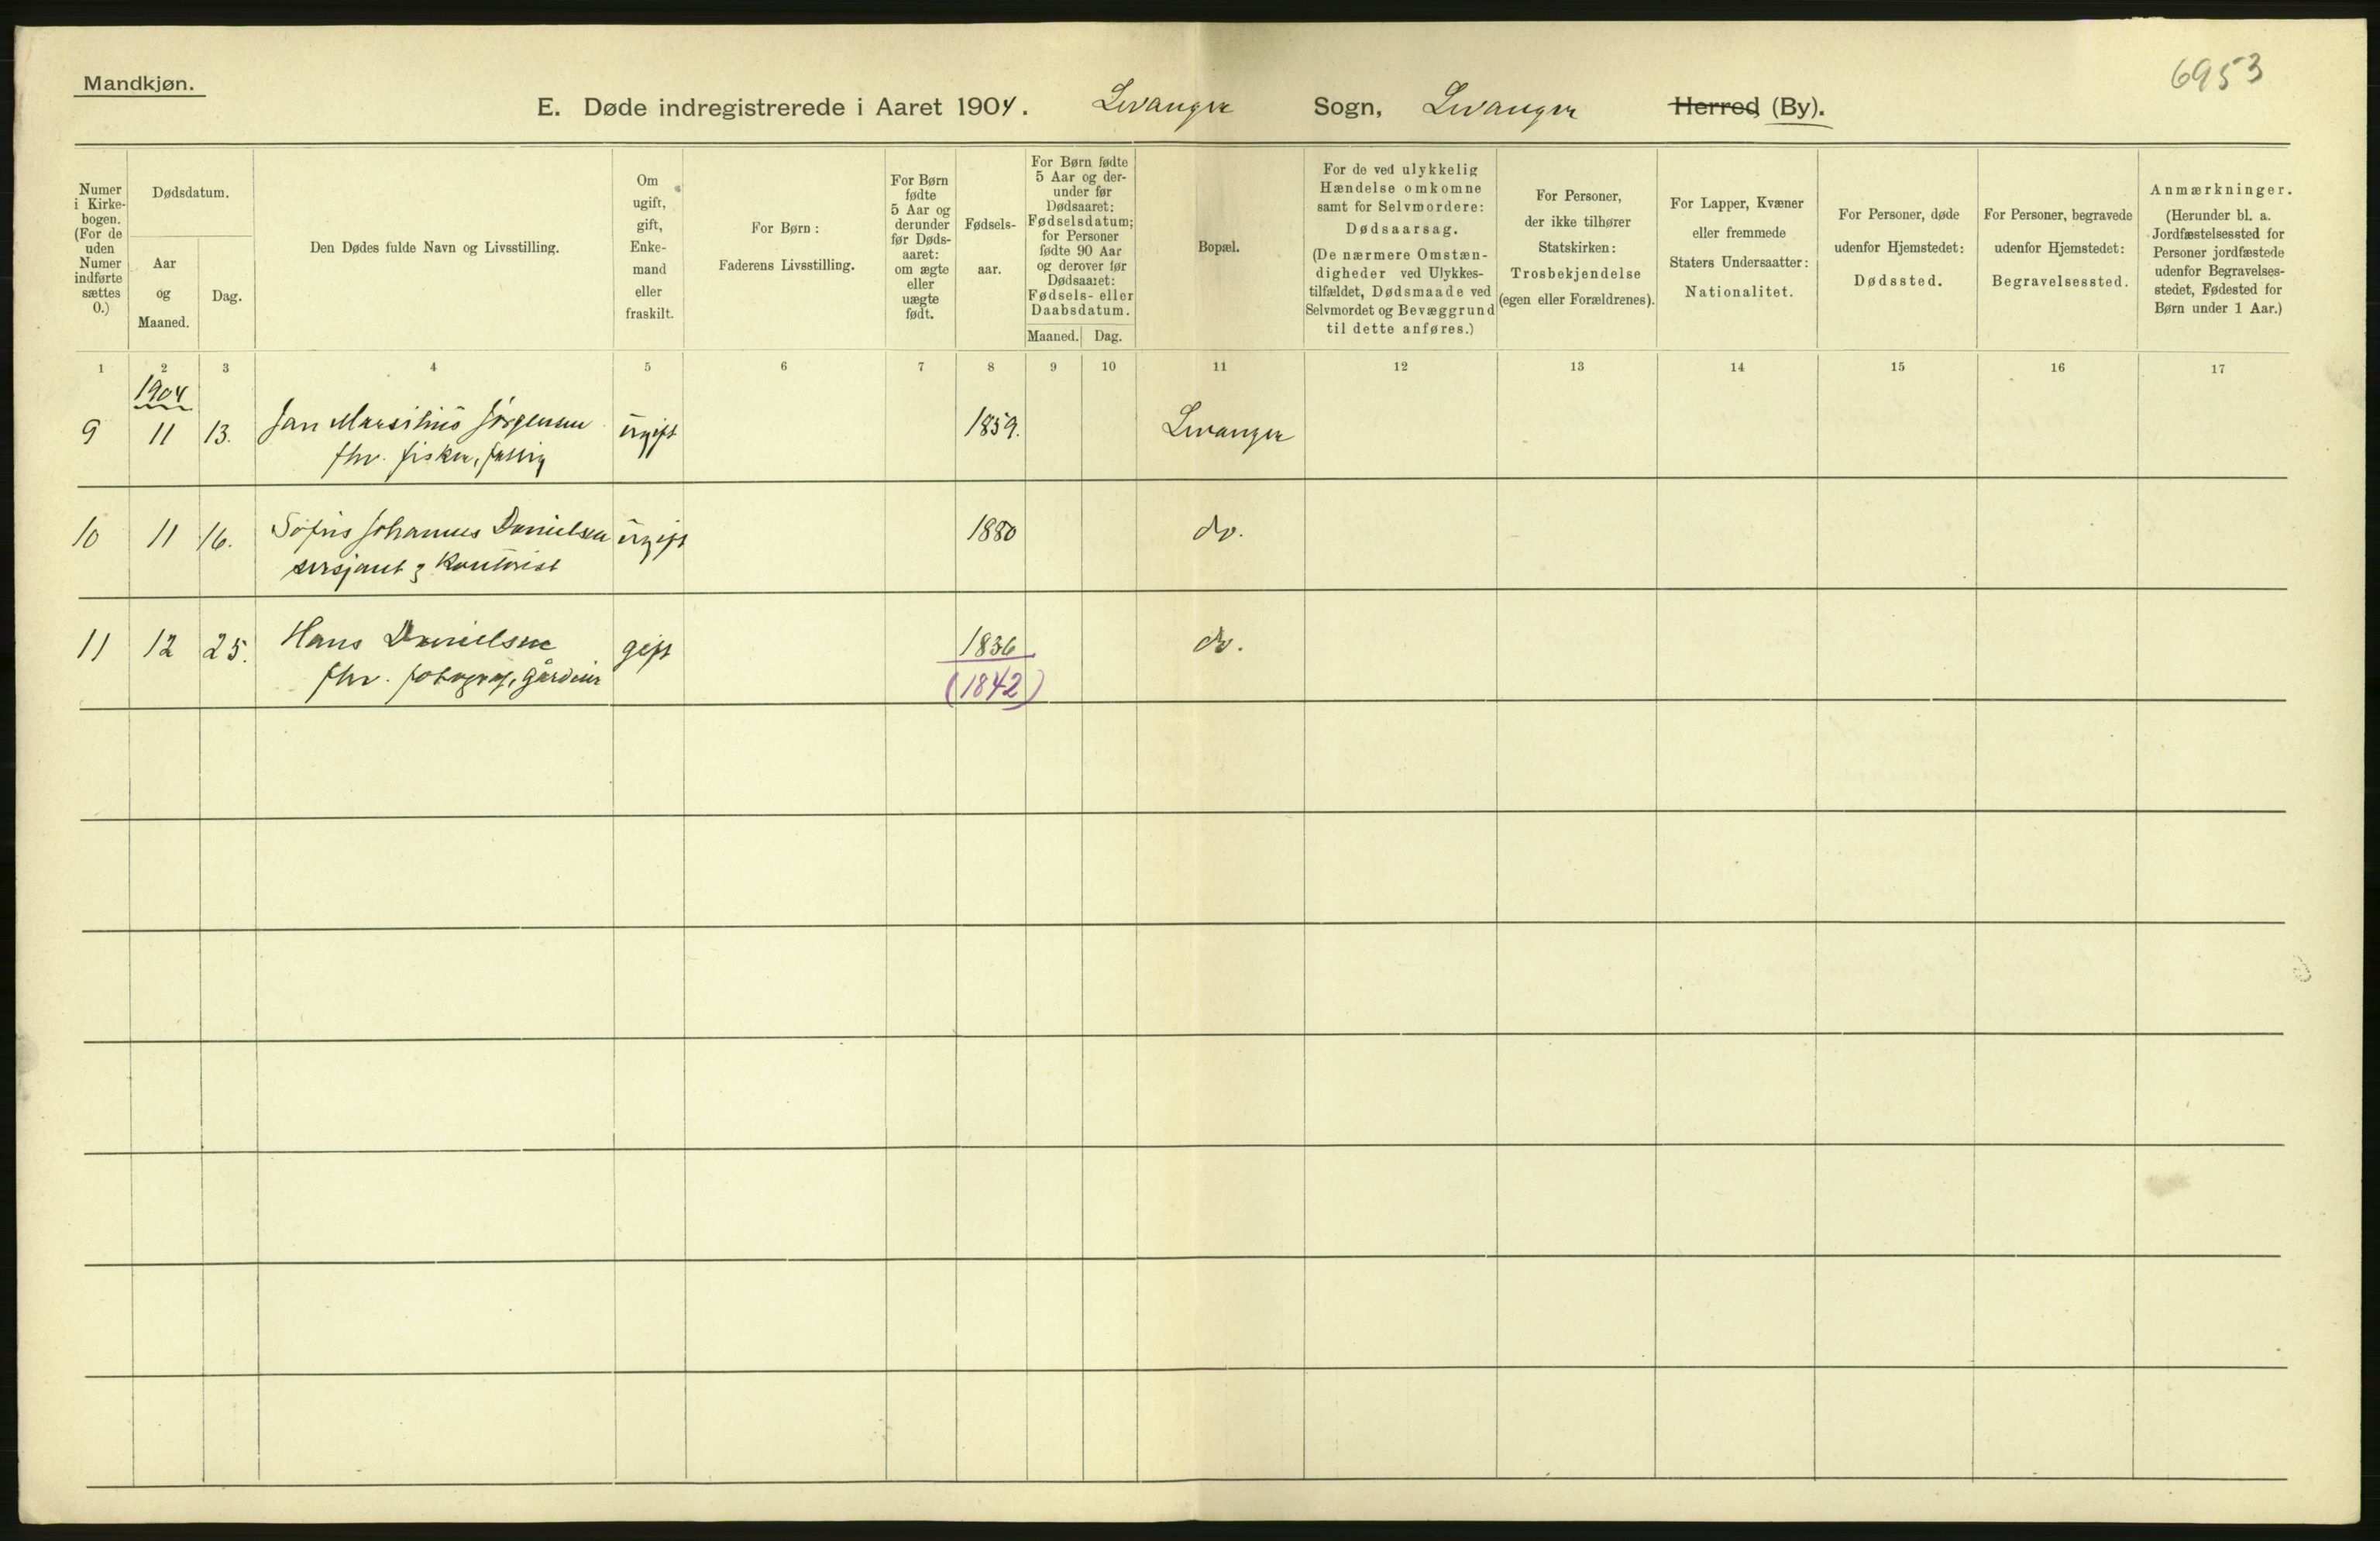 6953
Mandkjøn.
E. Døde indregistrerede i Aaret 1904. Levanger Sogn, Levanger Herred (By).
Numer
i Kirke-
bogen.
(For de
uden
Numer
indførte
sættes
0.)
Dødsdatum.
Aar
og
Maaned.
Dag.
Den Dødes fulde Navn og Livsstilling.
Om
ugift,
gift,
Enke-
mand
eller
fraskilt.
For Børn:
Faderens Livsstilling.
For Børn
fødte
5 Aar og
derunder
før Døds-
aaret:
om ægte
eller
uægte
født.
Fødsels-
aar.
For Børn fødte
5 Aar og der-
under før
Dødsaaret:
Fødselsdatum;
for Personer
fødte 90 Aar
og derover før
Dødsaaret:
Fødsels- eller
Daabsdatum.
Maaned. Dag.
Bopæl.
For de ved ulykkelig
Hændelse omkomne
samt for Selvmordere:
Dødsaarsag.
(De nærmere Omstæn-
digheder ved Ulykkes-
tilfældet, Dødsmaade ved
Selvmordet og Bevæggrund
til dette anføres.)
For Personer,
der ikke tilhører
Statskirken:
Trosbekjendelse
(egen eller Forældrenes).
For Lapper, Kvæner
eller fremmede
Staters Undersaatter:
Nationalitet.
For Personer, døde
udenfor Hjemstedet:
Dødssted.
For Personer, begravede
udenfor Hjemstedet:
Begravelsessted.
Anmærkninger.
(Herunder bl. a.
Jordfæstelsessted for
Personer jordfæstede
udenfor Begravelses-
stedet, Fødested for
Børn under 1 Aar.)
1 2 3 4 5 6 7 8 9 10 11 12 13 14 15 16 17
1904
9 11 13. Jan Marsilius Jørgensen ugift 1859. Levanger
fhv. fisker,
10 11 16. Sofus Johannes Danielsen ugift 1880 do.
sersjant & Kontorist
11 12 25. Hans Danielsen gift 1836 do.
fhv. fotograf, gårdeier (1842)